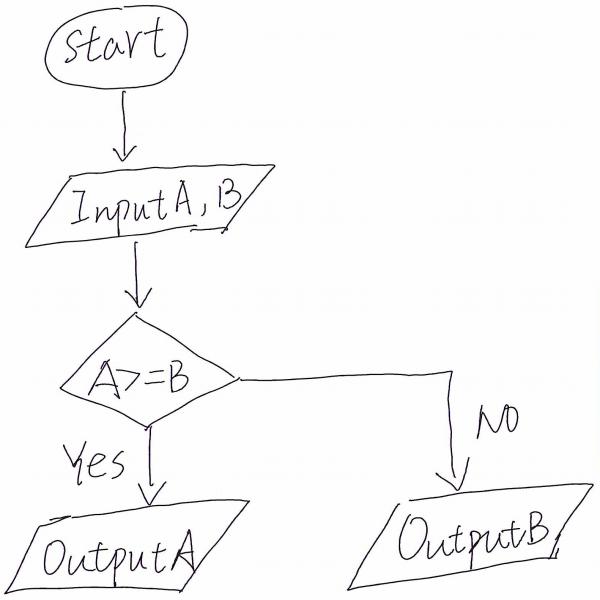 Start
Input A, B
A>=B
Yes
No
Output A
Output B